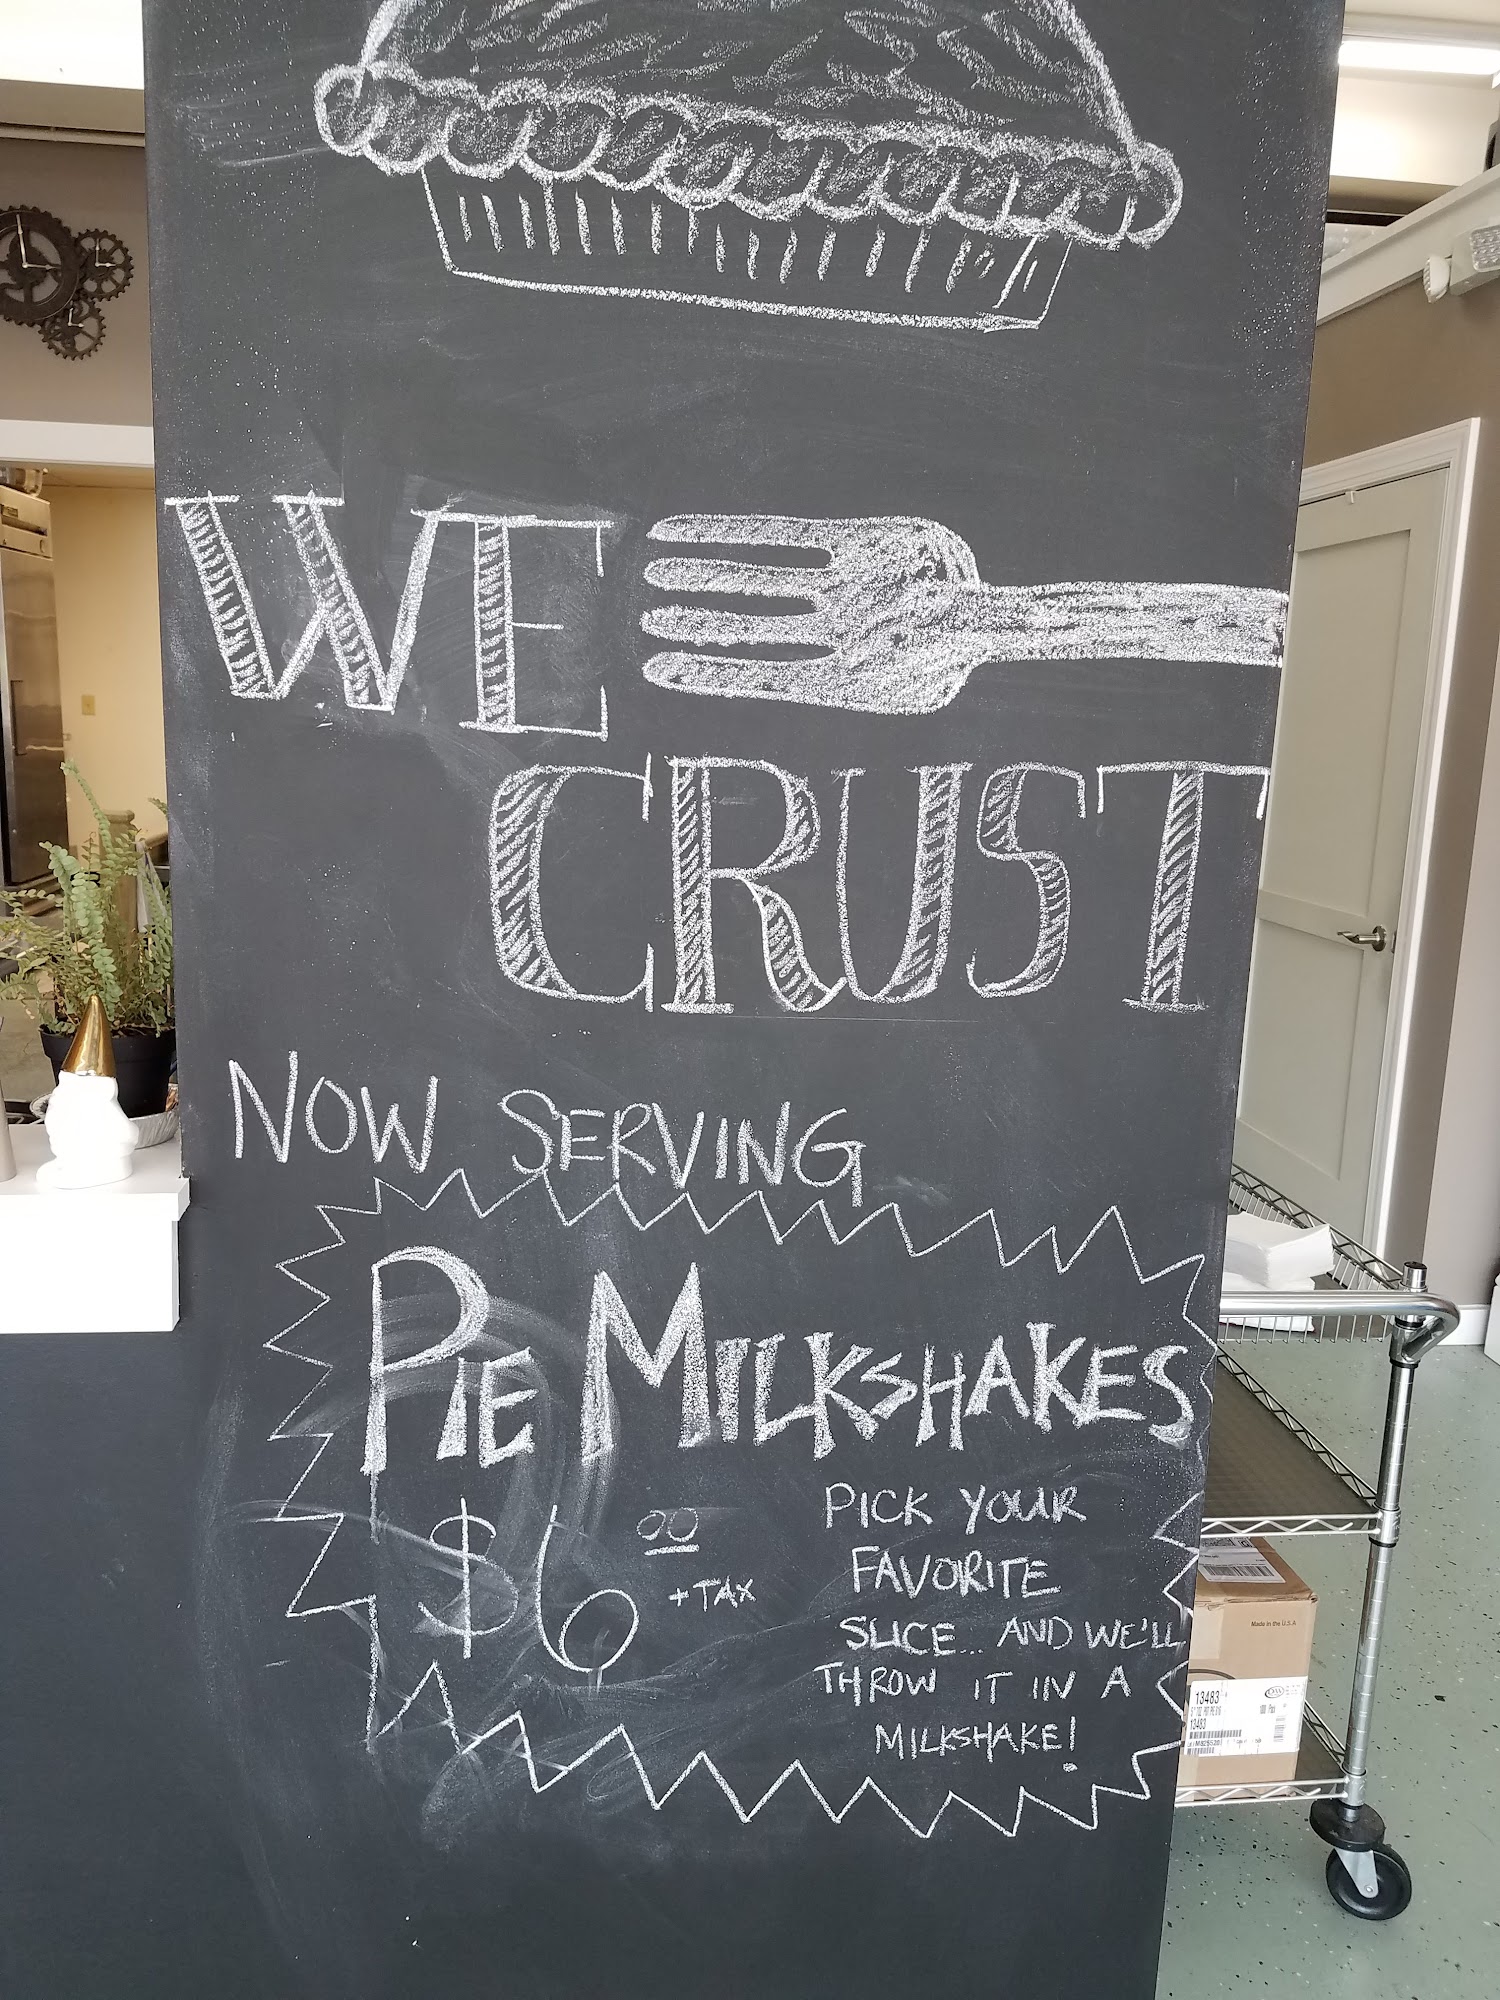 WE
CRUST
NOW SERVING
PIE MILKSHAKES
$6 00
+TAX
PICK YOUR
FAVORITE
SLICE... AND WE'LL
THROW IT IN A
MILKSHAKE!
Made in the U.S.A
13483
13483